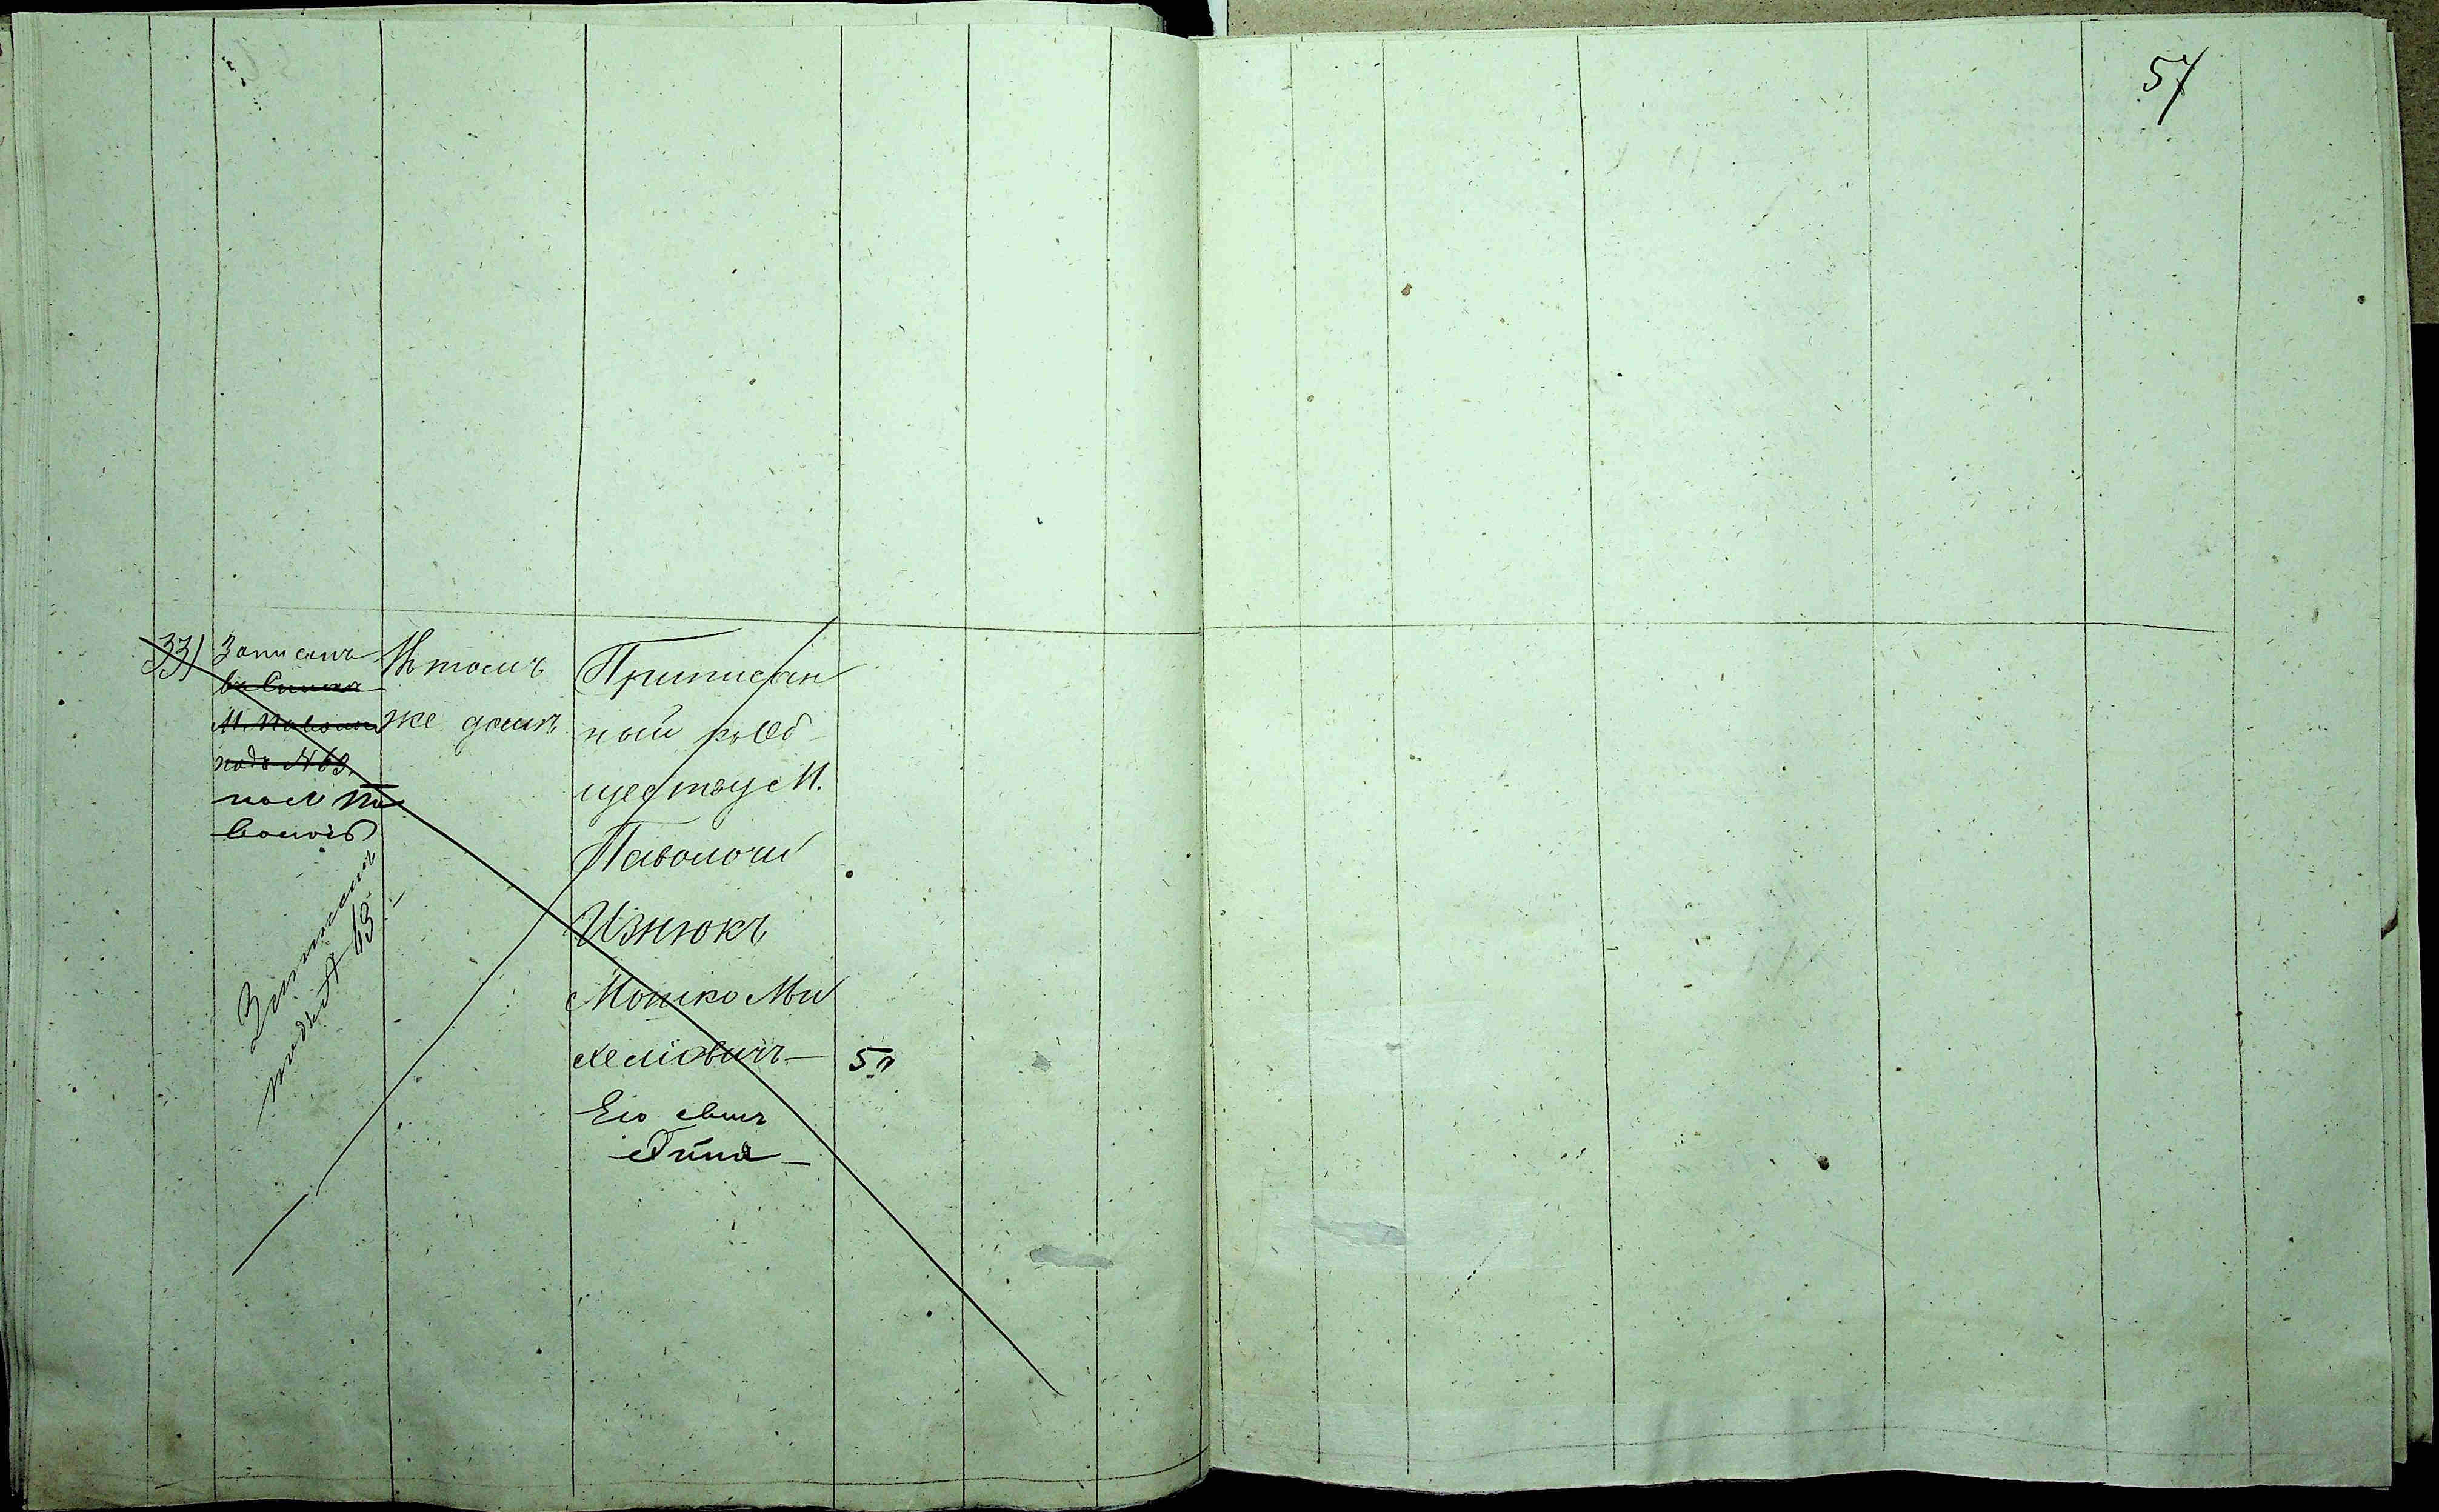 57
33)
Записанъ
въ Списка
М. Паволочи
подъ №63.
по М Па
волочѣ
Записанъ
подъ № 63
Въ томъ
же домѣ
Приписан
ный къ Об
ществу М.
Паволочи
Изнюкъ
Мошко Ми
хелiовичъ
50
Его сынъ